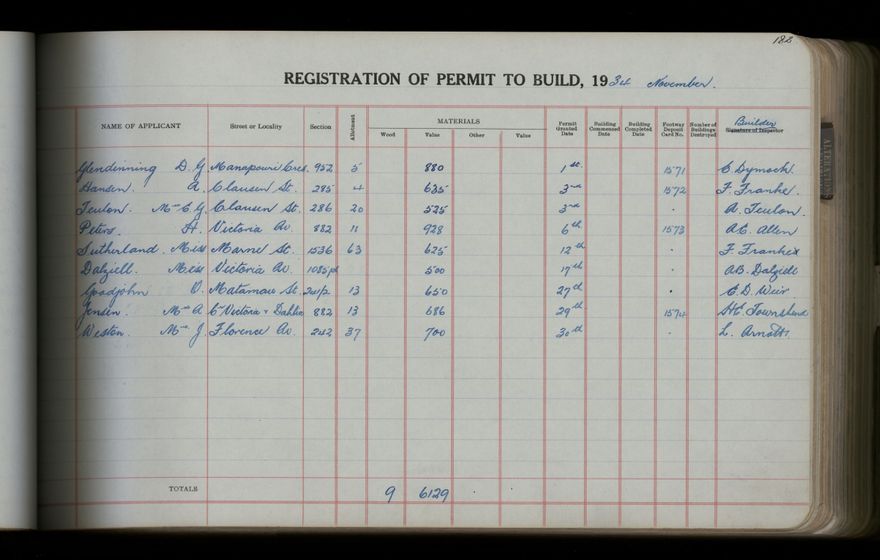 188
REGISTRATION OF PERMIT TO BUILD, 1934 November.
NAME OF APPLICANT Street or Locality Section Allotment MATERIALS Permit Granted Date Building Commenced Date Building Completed Date Footway Deposit Card No. Number of Buildings Destroyed Builder Signature of Inspector
Wood Value Other Value
Glendinning D. G. Manapouri Cres. 952 5 880 1st. 1571 C. Dymock.
Hansen. A. Clausen St. 285 4 635 3rd 1572 F. Franke.
Teulon. Mrs C. G. Clausen St. 286 20 525 3rd . A. Teulon.
Peters. H. Victoria Av. 882 11 928 6th 1573 A.E. Allen
Sutherland. Miss Marne St. 1536 63 625 12th . F. Franke
Dalziell. Miss Victoria Av. 1085 pt 500 17th . A.B. Dalziell
Goodjohn O. Matamau St. 13 650 27th . C. D. Weir
Jensen. Mrs A Cr Victoria & Dahlia 882 13 686 29th 1574 H.E. Townshend
Weston. Mrs J. Florence Av. 242 37 700 30th . L. Arnott.
TOTALS 9 6129 . .
ALTERATIONS